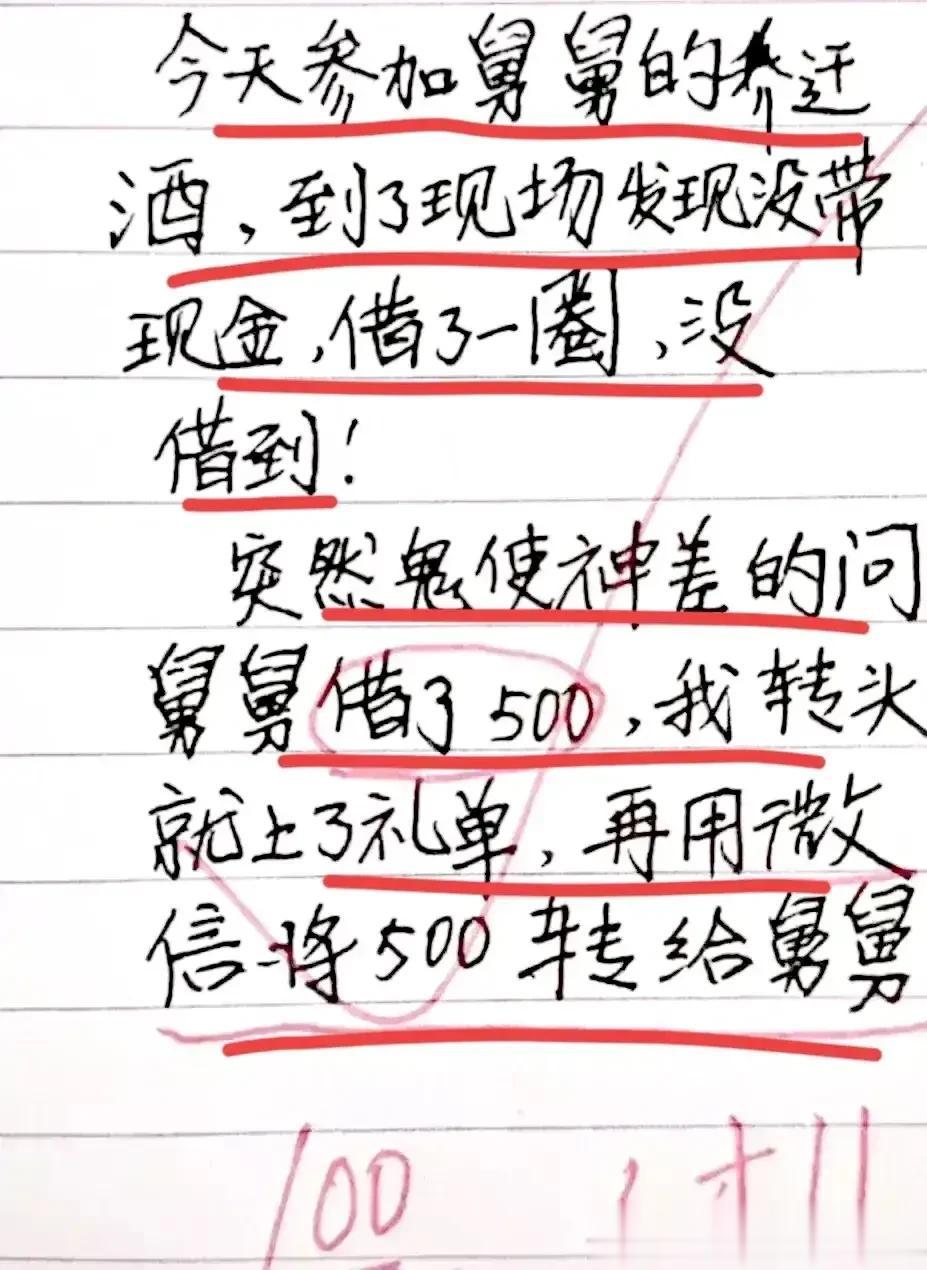 今天参加舅舅的乔迁
酒，到了现场发现没带
现金，借了一圈，没
借到！
突然鬼使神差的问
舅舅借了500，我转头
就上了礼单，再用微
信将500转给舅舅
100